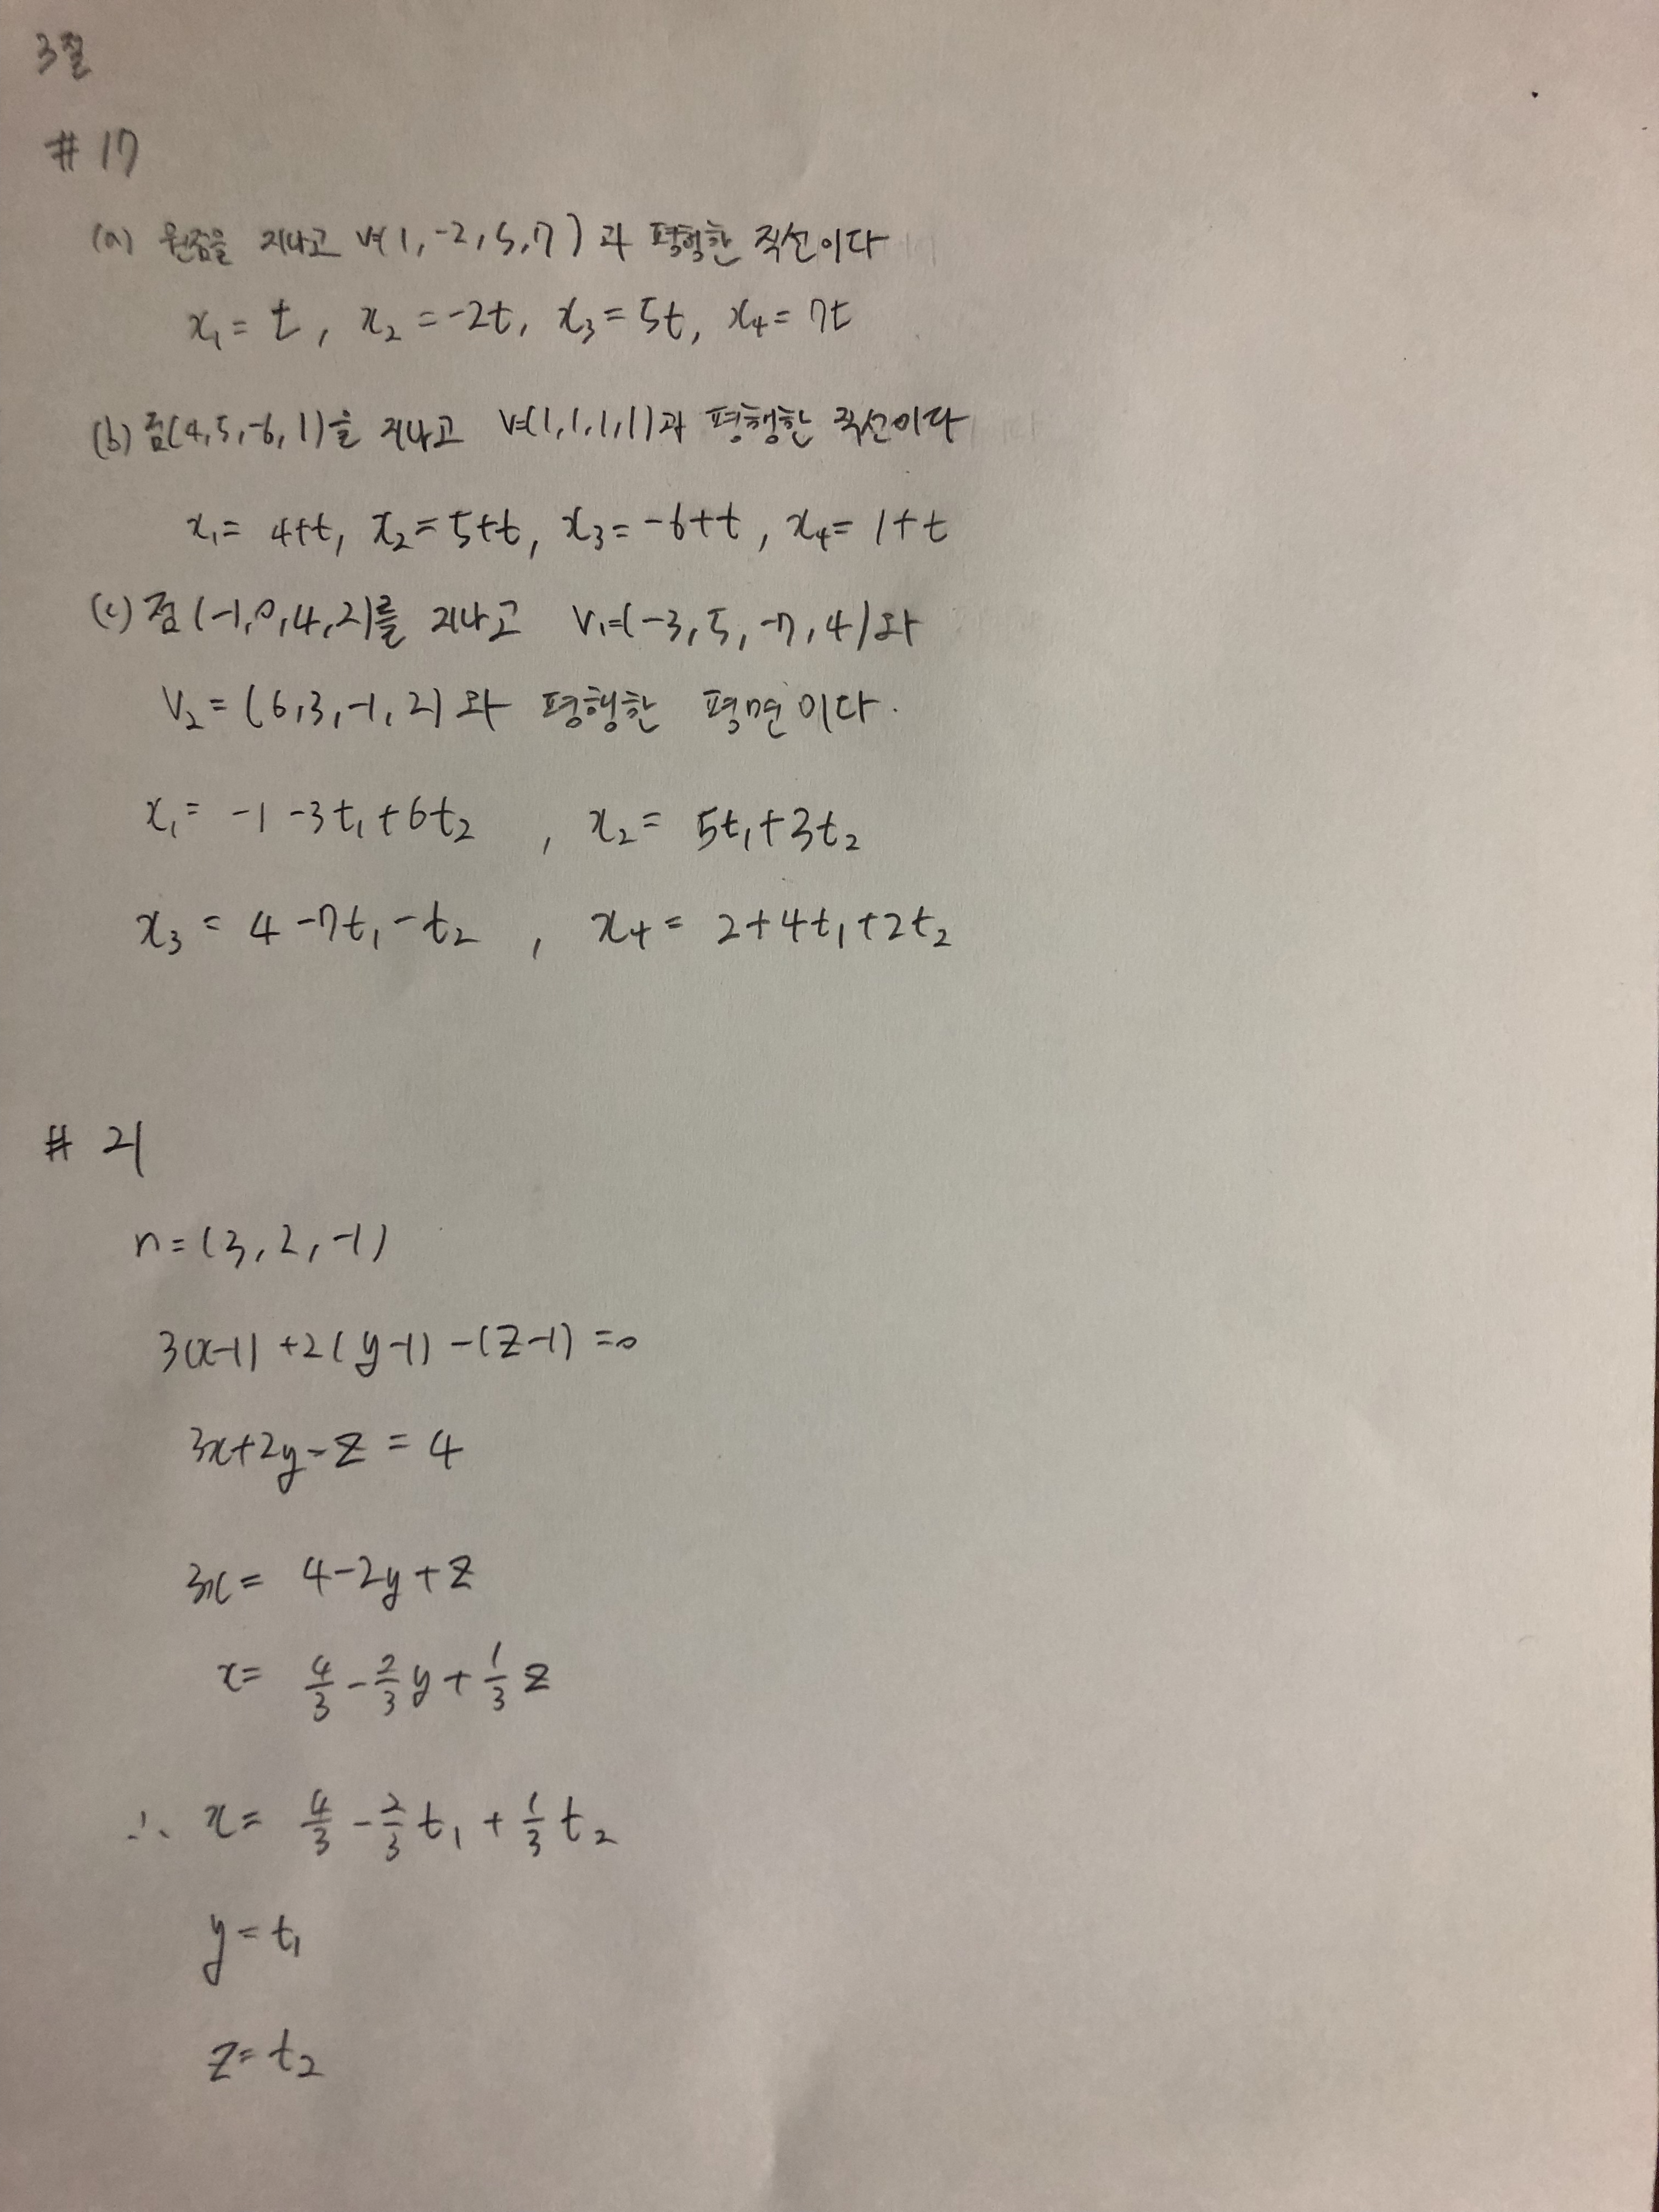 3절
# 17
(a) 원점을 지나고 v=(1, -2, 5, 7) 과 평행한 직선이다
x₁ = t, x₂ = -2t, x₃ = 5t, x₄ = 7t
(b) 점(4, 5, -6, 1)을 지나고 v=(1, 1, 1, 1)과 평행한 직선이다
x₁ = 4+t, x₂ = 5+t, x₃ = -6+t, x₄ = 1+t
(c) 점(-1, 0, 4, 2)를 지나고 v₁=(-3, 5, -7, 4)와
v₂ = (6, 3, -1, 2)와 평행한 평면이다.
x₁ = -1 -3t₁ + 6t₂ , x₂ = 5t₁ + 3t₂
x₃ = 4 - 7t₁ - t₂ , x₄ = 2 + 4t₁ + 2t₂
# 21
n = (3, 2, -1)
3(x-1) + 2(y-1) - (z-1) = 0
3x + 2y - z = 4
3x = 4 - 2y + z
x = 4/3 - 2/3 y + 1/3 z
∴ x = 4/3 - 2/3 t₁ + 1/3 t₂
y = t₁
z = t₂